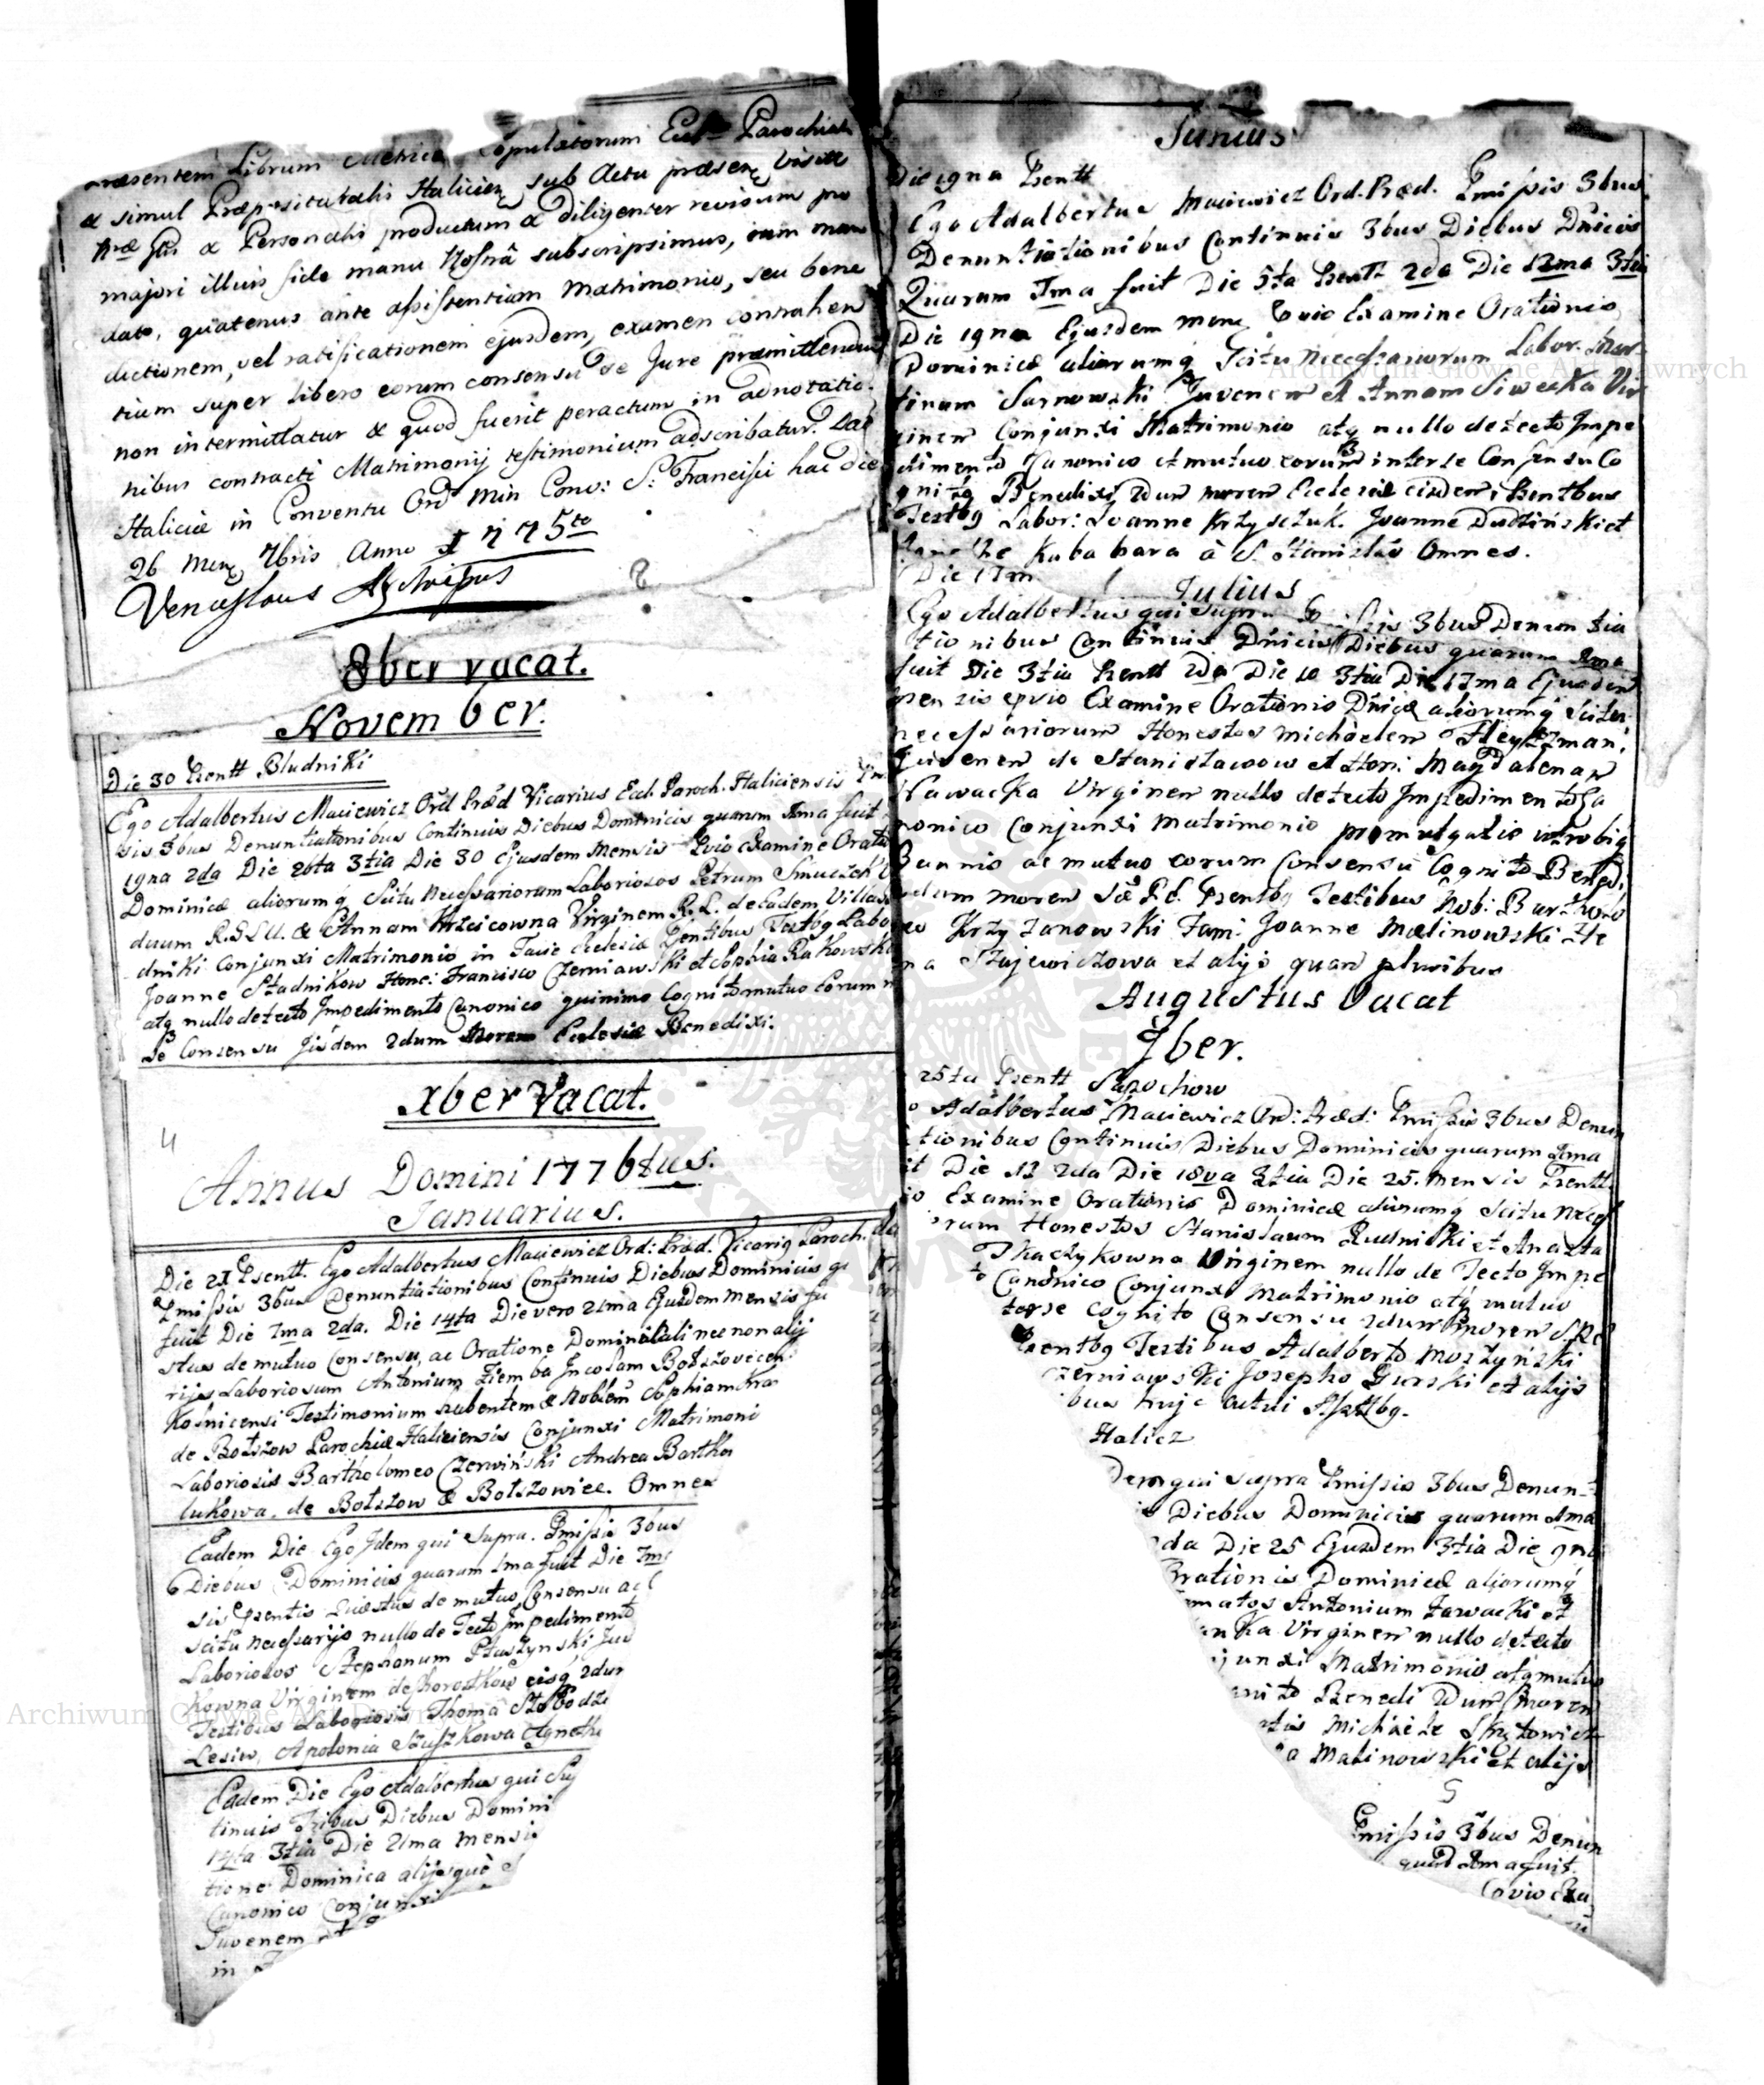 præsentem Librum Metrices Copulatorum Eccl Parochial
& simul Præposituralis Halicien sub Actu præsen Visitt
nræ Gnlis & Personalis productum & diligenter revisum pro
majori illius fide manu Nostrâ subscripsimus, cum man
dato, quatenus ante assistentiam Matrimonio, seu bene
dictionem, vel ratificationem ejusdem, examen contrahen
tium super libero eorum consensu de Jure præmittendum
non intermittatur & quod fuerit peractum in adnotatio
nibus contracti Matrimonij testimonium adscribatur. Dat
Haliciæ in Conventu Ord Min Conv: S: Francisci hac die
26 Men 7bris Anno 1775to
Venceslaus
8ber vacat.
November.
Die 30 Psentt Bludniki
Ego Adalbertus Maciewicz Ord Præd Vicarius Eccl. Paroch. Haliciensis Pmis
sis 3bus Denuntiationibus Continuis Diebus Dominicis quarum Ima fuit
19na 2da Die 26ta 3tia Die 30 ejusdem Mensis Pvio Examine Oratio
Dominicæ aliorumq Scitu Necessariorum Laboriosos Petrum Smuczek
duum R.G.L.U. & Annam Krzeicowna Virginem R.L. de Eadem Villa
dniki Conjunxi Matrimonio in facie Eclesiæ Psentibus Testbq Labo
Joanne Stadnikow Hone: Francisco Czerniawski et Sophia Rakowska
atq nullo detecto Impedimento Canonico quinimo Cognito mutuo Eorum
se Consensu Jisdem 2dum Morem Eclesiæ Benedixi.
xber Vacat.
4
Annus Domini 1776tus.
Januarius.
Die 21 Psentt. Ego Adalbertus Maciewicz Ord: Præd. Vicariq Paroch.
Pmissis 3bus Denuntiationibus Continuis Diebus Dominicis
fuit Die 7ma 2da. Die 14ta Die vero 21ma Ejusdem Mensis
stus de mutuo Consensu, ac Oratione Dominicali nec non alij
rijs Laboriosum Antonium Ziemba Incolam Bolszovicen
Kosnicensi Testimonium habentem & Noblem Sophiam
de Bolszow Parochiæ Haliciensis Conjunxi Matrimoni
Laboriosis Bartholomeo Czerwiński Andrea Barthol
lukowa, de Bolszow & Bolszowiec. Omnes
Eadem Die Ego Idem qui Supra. Pmissis 3bus
Diebus Dominicis quarum Ima fuit Die 7ma
sis Psentis Quæstus de mutuo, Consensu ac
scitu necessarijs nullo de Tecto Impedimento
Laboriosos Stephanum Ptaszynski Juv
kowna Virginem de choroskow eisq 2dum
Testibus Laboriosis Thoma Stobodzi
Lesiw, Apolonia Szuszkowa Agnethe
Eadem Die Ego Adalbertus qui Sup
tinuis Tribus Diebus Domini
14ta 3tia Die 21ma Mensis
tione Dominica alijsquè
Canonico Conjunxi
Juvenem et
in
Junius
Die 19na Psentt
Ego Adalbertus Maciewicz Ord. Præd. Pmissis 3bus
Denuntiationibus Continuis 3bus Diebus Dnicis
Quarum Ima fuit Die 5ta Psentt 2da Die 12ma 3tia
Die 19na Ejusdem Men Pvio Examine Orationis
Dominicæ aliorumq Scitu Necessariorum Labor. Mar
tinum Sarnowski Juvenem et Annam Siwecka Vir
ginem Conjunxi Matrimonio atq nullo detecto Impe
dimento Canonico et mutuo eorum inter se Consensu Co
gnito Benedixi 2dum morem Eccleciæ eisdem Psentbus
Testbq Labor: Ioanne Krzysczuk. Joanne Dudziński et
Kubabara à S. Stanislao Omnes.
Die 17m
Julius
Ego Adalbertus qui supra Pmissis 3bus Denuntia
tionibus Continuis Dnicis Diebus quarum Ima
fuit Die 3tia Psentt 2da Die 10 3tia Die 17ma Ejusdem
Mensis epvio Examine Orationis Dnicæ aliorumq Scitu
necessariorum Honestos Michäelem Heytzman
Juvenem de Stanislawow et Hon: Magdalenam
Nawacka Virginem nullo detecto Impedimento Ca
nonico Conjunxi Matrimonio promulgatis utrobiq
Bannis ac mutuo eorum Consensu Cognito Benedi
2dum morem Psentbq Testibus Nob: Bartholo
meo Krzyzanowski Fam: Joanne Malinowski
na Szajewiczowa et alijs quam pluribus
Augustus Vacat
7ber.
25ta Psentt Sapochow
o Adalbertus Maciewicz Ord: Præd: Pmissis 3bus Denun
tionibus Continuis Diebus Dominicis quarum Ima
it Die 11 2da Die 18va 3tia Die 25. Mensis Psentt
io Examine Orationis Dominicæ aliorumq Scitu Necess
orum Honestos Stanislaum Rudnicki et Anasta
Tkaczykowna Virginem nullo de Tecto Impe
to Canonico Conjunxi Matrimonio atq mutuo
terse Cognito Consensu 2dum morem S.
Psentbq Testibus Adalberto Moszyński
Czerniawski Josepho Gurski et alijs
bus hujc actui Astbq.
Halicz
Dem qui supra Pmissis 3bus Denun
is Diebus Dominicis quarum Ima
2da Die 25 Ejusdem 3tia Die 9na
Orationis Dominicæ aliorumq
matos Antonium Zawacki et
anka Virginem nullo detecto
junxi Matrimonio atq mutuo
gnito Benedi 2dum Morem
Michàele
a Malinowski et alijs
Pmissis 3bus Denun
quar Ima fuit.
Pvio Exa